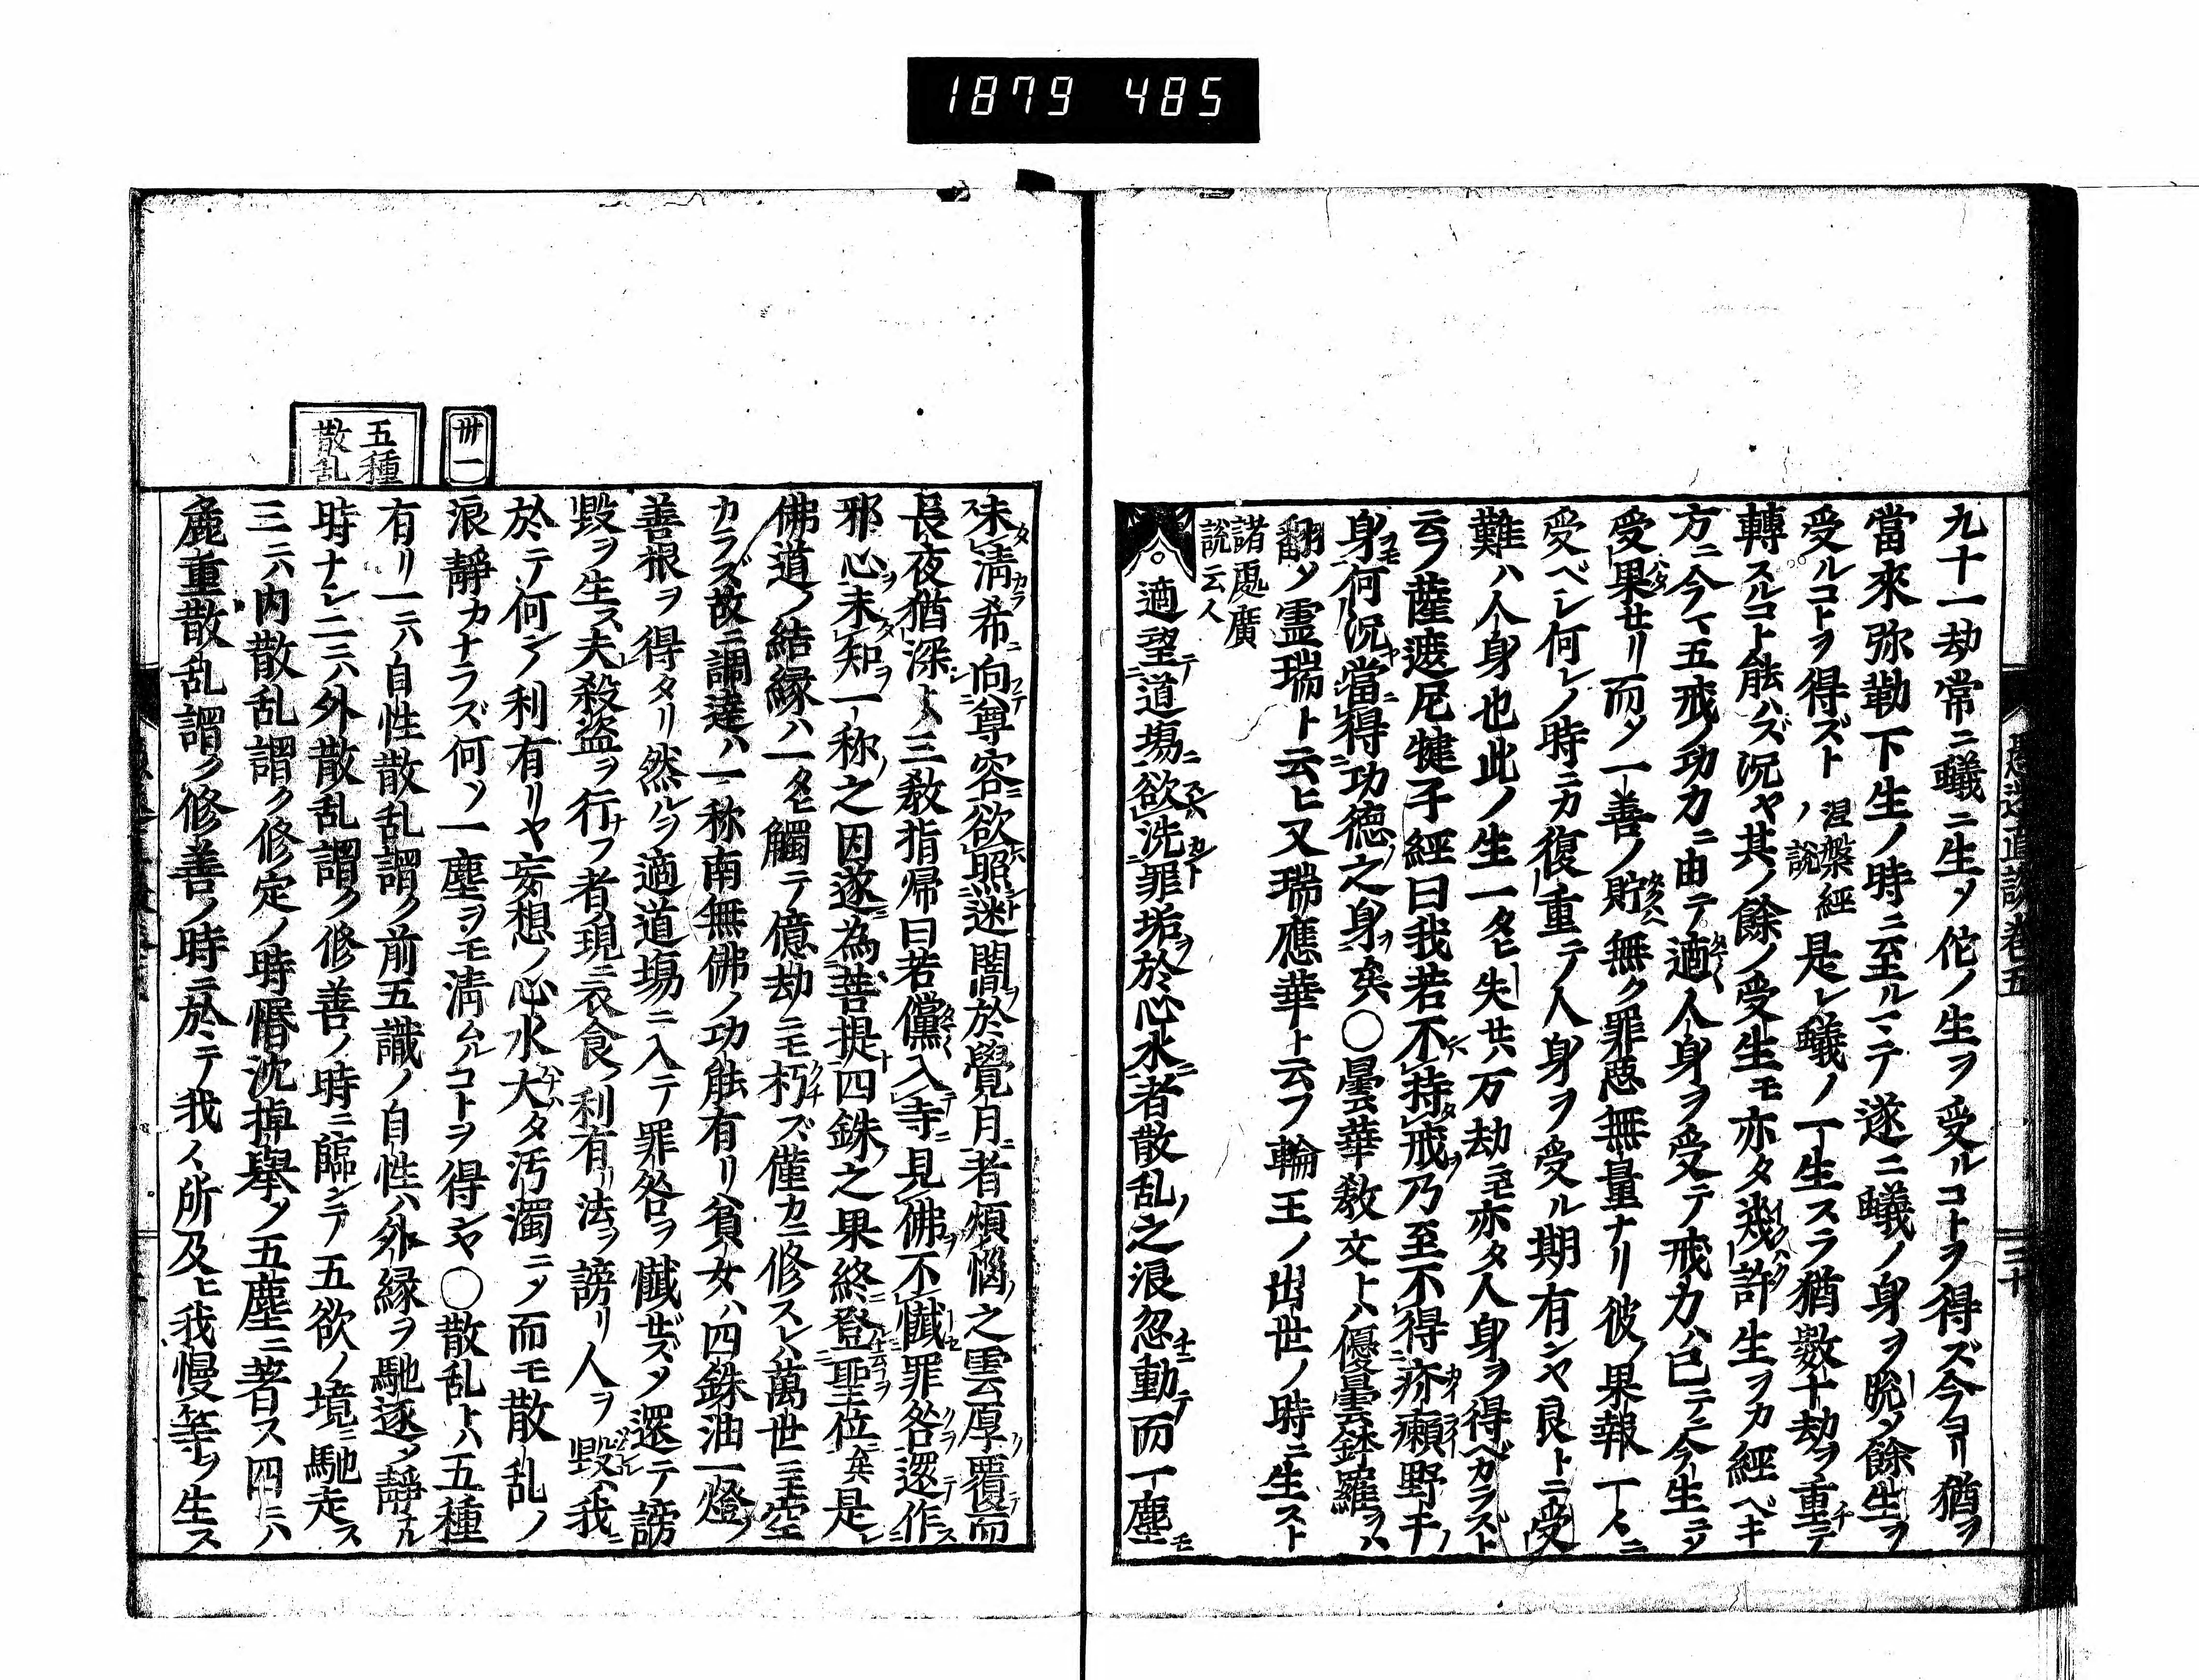 1879 485
九十一劫常ニ蟻ニ生ノ佗ノ生ヲ受ルコトヲ得ズ今ヨリ猶ヲ
當來弥勒下生ノ時ニ至ルマテ遂ニ蟻ノ身ヲ脫メ餘生ヲ
受ルコトヲ得ズト涅槃經ノ說是レ蟻ノ一生スラ猶數十劫ヲ重テ
轉スルコト能ハズ況ヤ其ノ餘ノ受生モ亦タ幾許生ヲカ經ベキ
方ニ今マ五戒ノ功力ニ由テ適人身ヲ受テ戒力ハ已テニ今生ニノ
受果セリ而メ一善ノ貯無ク罪惡無量ナリ彼ノ果報一〻ニ
受ベシ何レノ時ニカ復重テ人身ヲ受ル期有ンヤ良トニ受
難ハ人身也此ノ生一タヒ失セハ万劫ニモ亦タ人身ヲ得ベカラズト
云フ薩遮尼犍子經曰我若不持戒乃至不得疥癩野干ノ
身何況當得功德之身矣〇曇華教文トハ優曇鉢羅ヲハ
翻メ霊瑞ト云ヒ又瑞應華ト云フ輪王ノ出世ノ時ニ生スト
諸處廣
說云人
適望道場欲洗罪垢於心水者散乱之浪忽動而一塵モ
三十
卅一
五種
散乱
未淸希向尊容欲照迷闇於覺月者煩惱之雲厚覆而
長夜猶深ト〻三教指帰曰若儻入寺見佛不懺罪咎還作
邪心未知一称之因遂為菩提四銖之果終登聖位矣是レ
佛道ノ結縁ハ一タヒ觸テ億劫ニモ朽ズ僅カニ修スレハ萬世ニモ空
カラズ故ニ調達ハ一称南無佛ノ功能有リ貧女ハ四銖油一燈ノ
善根ヲ得タリ然ルヲ適道塲ニ入テ罪咎ヲ懺セズメ還テ謗
毀ヲ生ス夫殺盗ヲ行フ者現ニ衣食ノ利有リ法ヲ謗リ人ヲ毀ル我ニ
於テ何ンノ利有リヤ妄想ノ心水大タ汚濁ニメ而モ散乱ノ
浪靜カナラズ何ソ一塵ヲモ淸ムルコトヲ得ンヤ〇散乱トハ五種
有リ一ニハ自性散乱謂ク前五識ノ自性ハ外縁ヲ馳逐メ靜ナル
時ナシ二ニハ外散乱謂ク修善ノ時ニ臨ンテ五欲ノ境ニ馳走ス
三ニハ内散乱謂ク修定ノ時惛沈掉擧ノ五塵ニ著ス四ニハ
麁重散乱謂ク修善ノ時ニ於テ我〻所及ヒ我慢等ヲ生ス